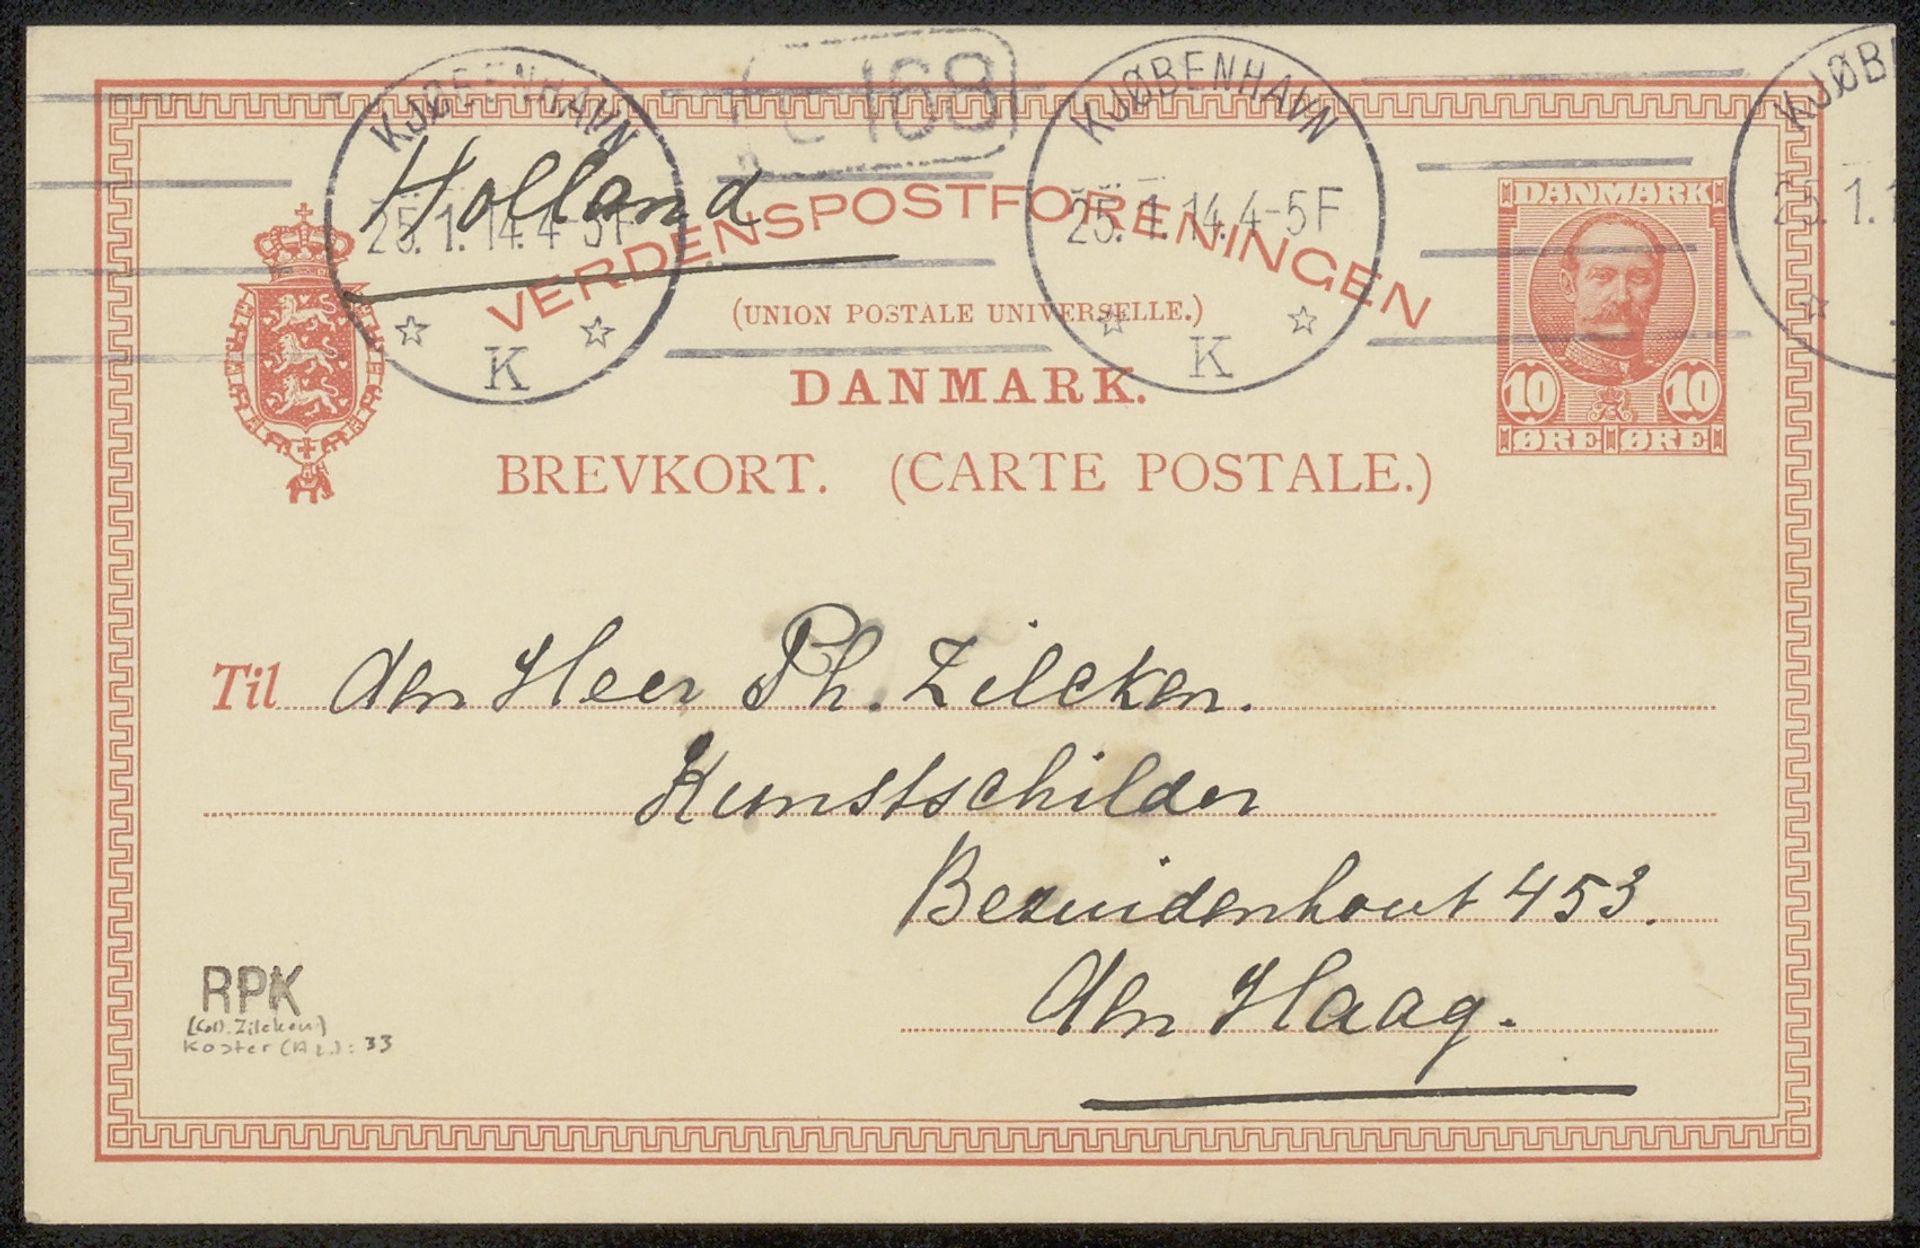 KJØBENHAVN
25.1.14.4-5F
K
168
KJØBENHAVN
25.1.14.4-5F
K
KJØB
25.1.1
Holland
VERDENSPOSTFORENINGEN
(UNION POSTALE UNIVERSELLE.)
DANMARK.
BREVKORT. (CARTE POSTALE.)
DANMARK
10 10
ØRE ØRE
Til den Heer Ph. Zilcken.
Kunstschilder
Bezuidenhout 453.
den Haag.
RPK
(Coll. Zilcken)
Koster (A.L.): 33